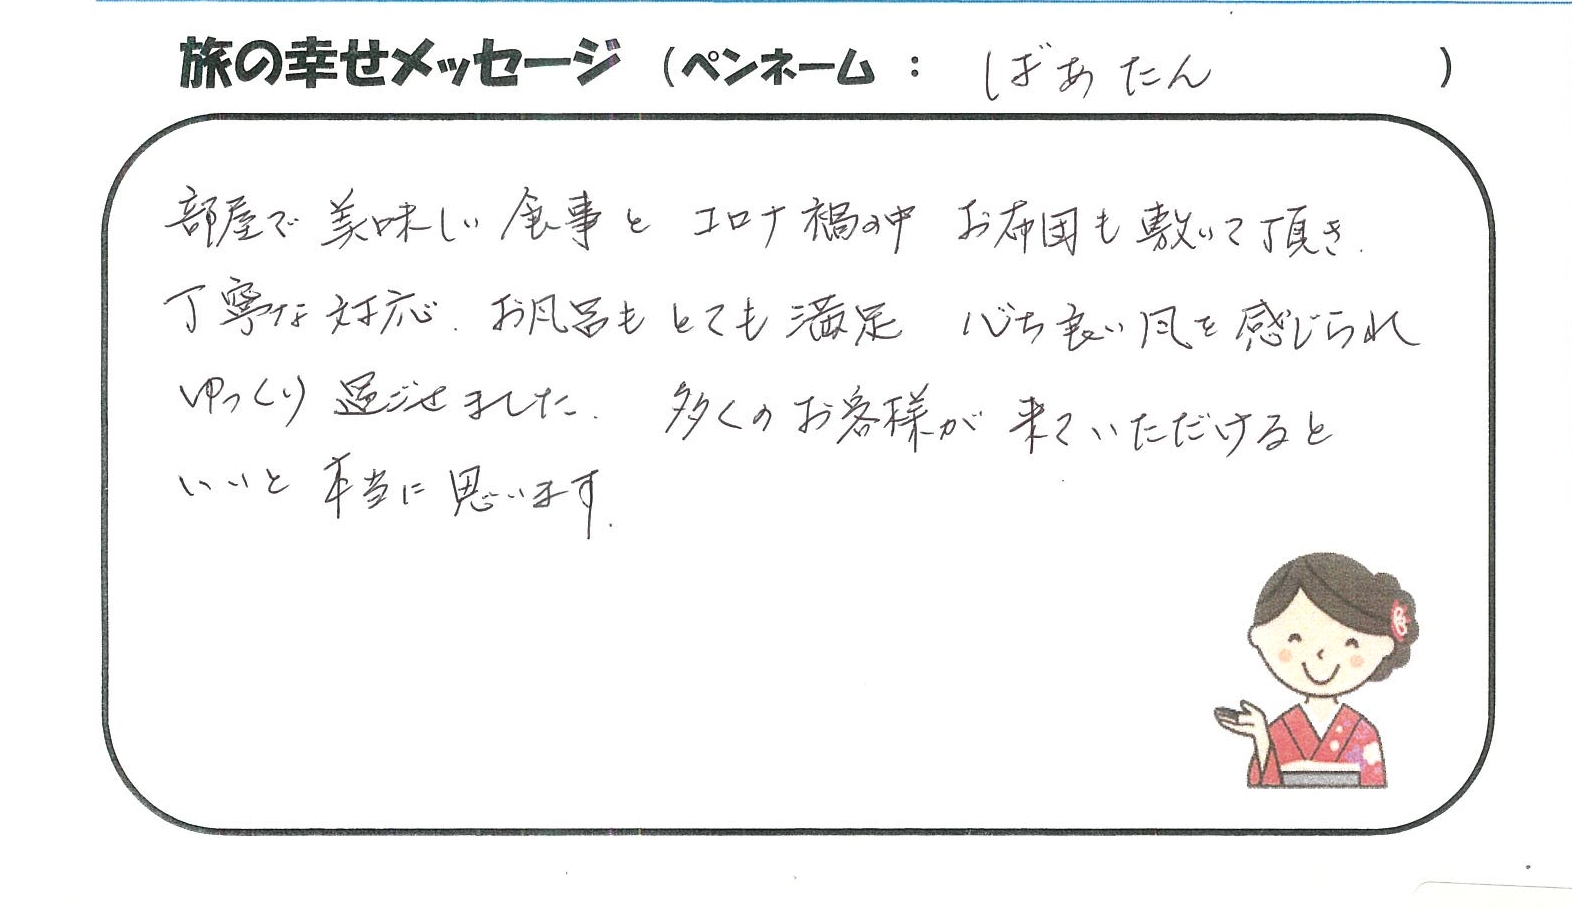 旅の幸せメッセージ (ペンネーム : ばあたん )
部屋で 美味しい 食事と コロナ禍の中 お布団も敷いて頂き.
丁寧な対応. お風呂もとても満足 心ち良い風を感じられ
ゆっくり過ごせました. 多くのお客様が来ていただけると
いいと本当に思います.